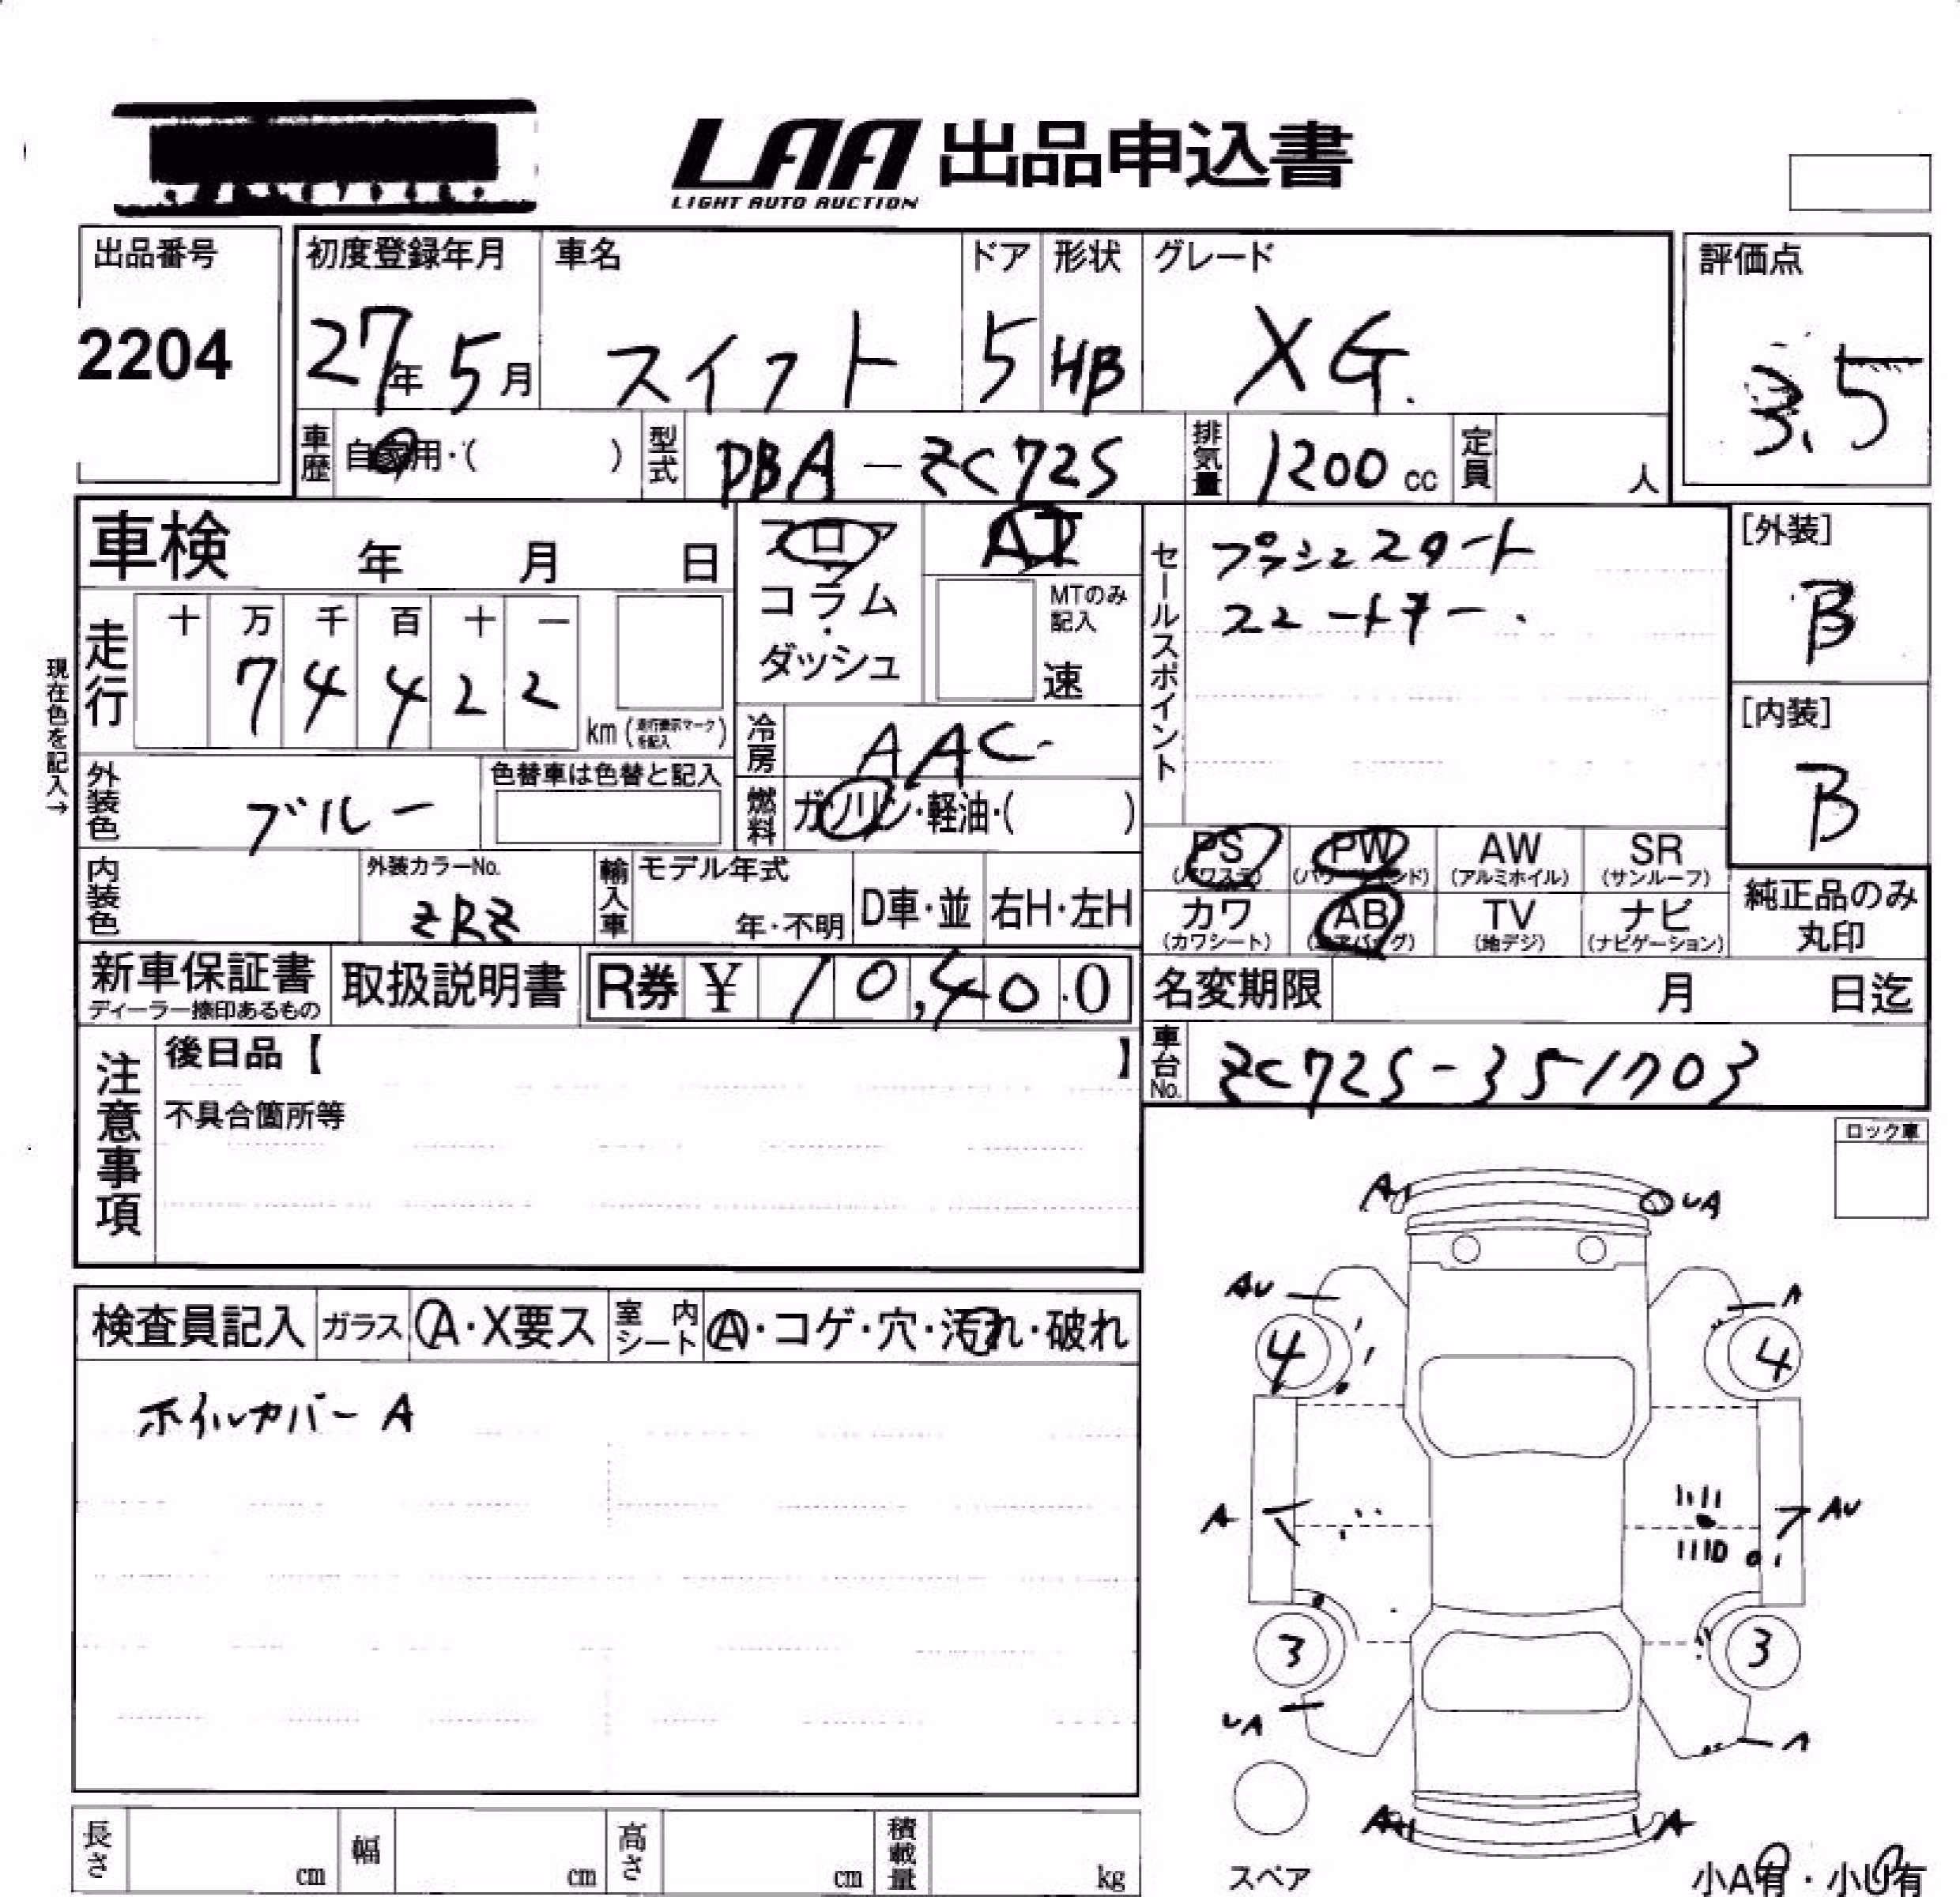 LAA 出品申込書
LIGHT AUTO AUCTION
出品番号
2204
初度登録年月
27年 5月
車名
スイフト
ドア
5
形状
HB
グレード
XG.
評価点
3.5
車歴 自家用・( )
型式 DBA-ZC72S
排気量 1200 cc
定員 人
車検 年 月 日
フロア
コラム
・
ダッシュ
AT
MTのみ記入
速
セールスポイント
プッシュスタート
スマートキー.
[外装]
B
[内装]
B
現在色を記入→
走行
十 万 千 百 十 一
7 4 4 2 2
km (走行表示マークを記入)
冷房 AAC
外装色 ブルー
色替車は色替と記入
燃料 ガソリン・軽油・( )
PS (パワステ)
PW (パワーウインド)
AW (アルミホイル)
SR (サンルーフ)
内装色
外装カラーNo.
ZRZ
輸入車
モデル年式
年・不明
D車・並
右H・左H
カワ (カワシート)
AB (エアバッグ)
TV (地デジ)
ナビ (ナビゲーション)
純正品のみ丸印
新車保証書
ディーラー捺印あるもの
取扱説明書
R券 ¥ 10,400
名変期限 月 日迄
車台No. ZC72S-351703
注意事項
後日品【 】
不具合箇所等
ロック車
検査員記入
ガラス A・X要ス
室内シート A・コゲ・穴・汚れ・破れ
ホイルカバーA
A UA
AU A
4 4
A AU
3 3
UA A
A A
スペア
小A有・小U有
長さ cm
幅 cm
高さ cm
積載量 kg